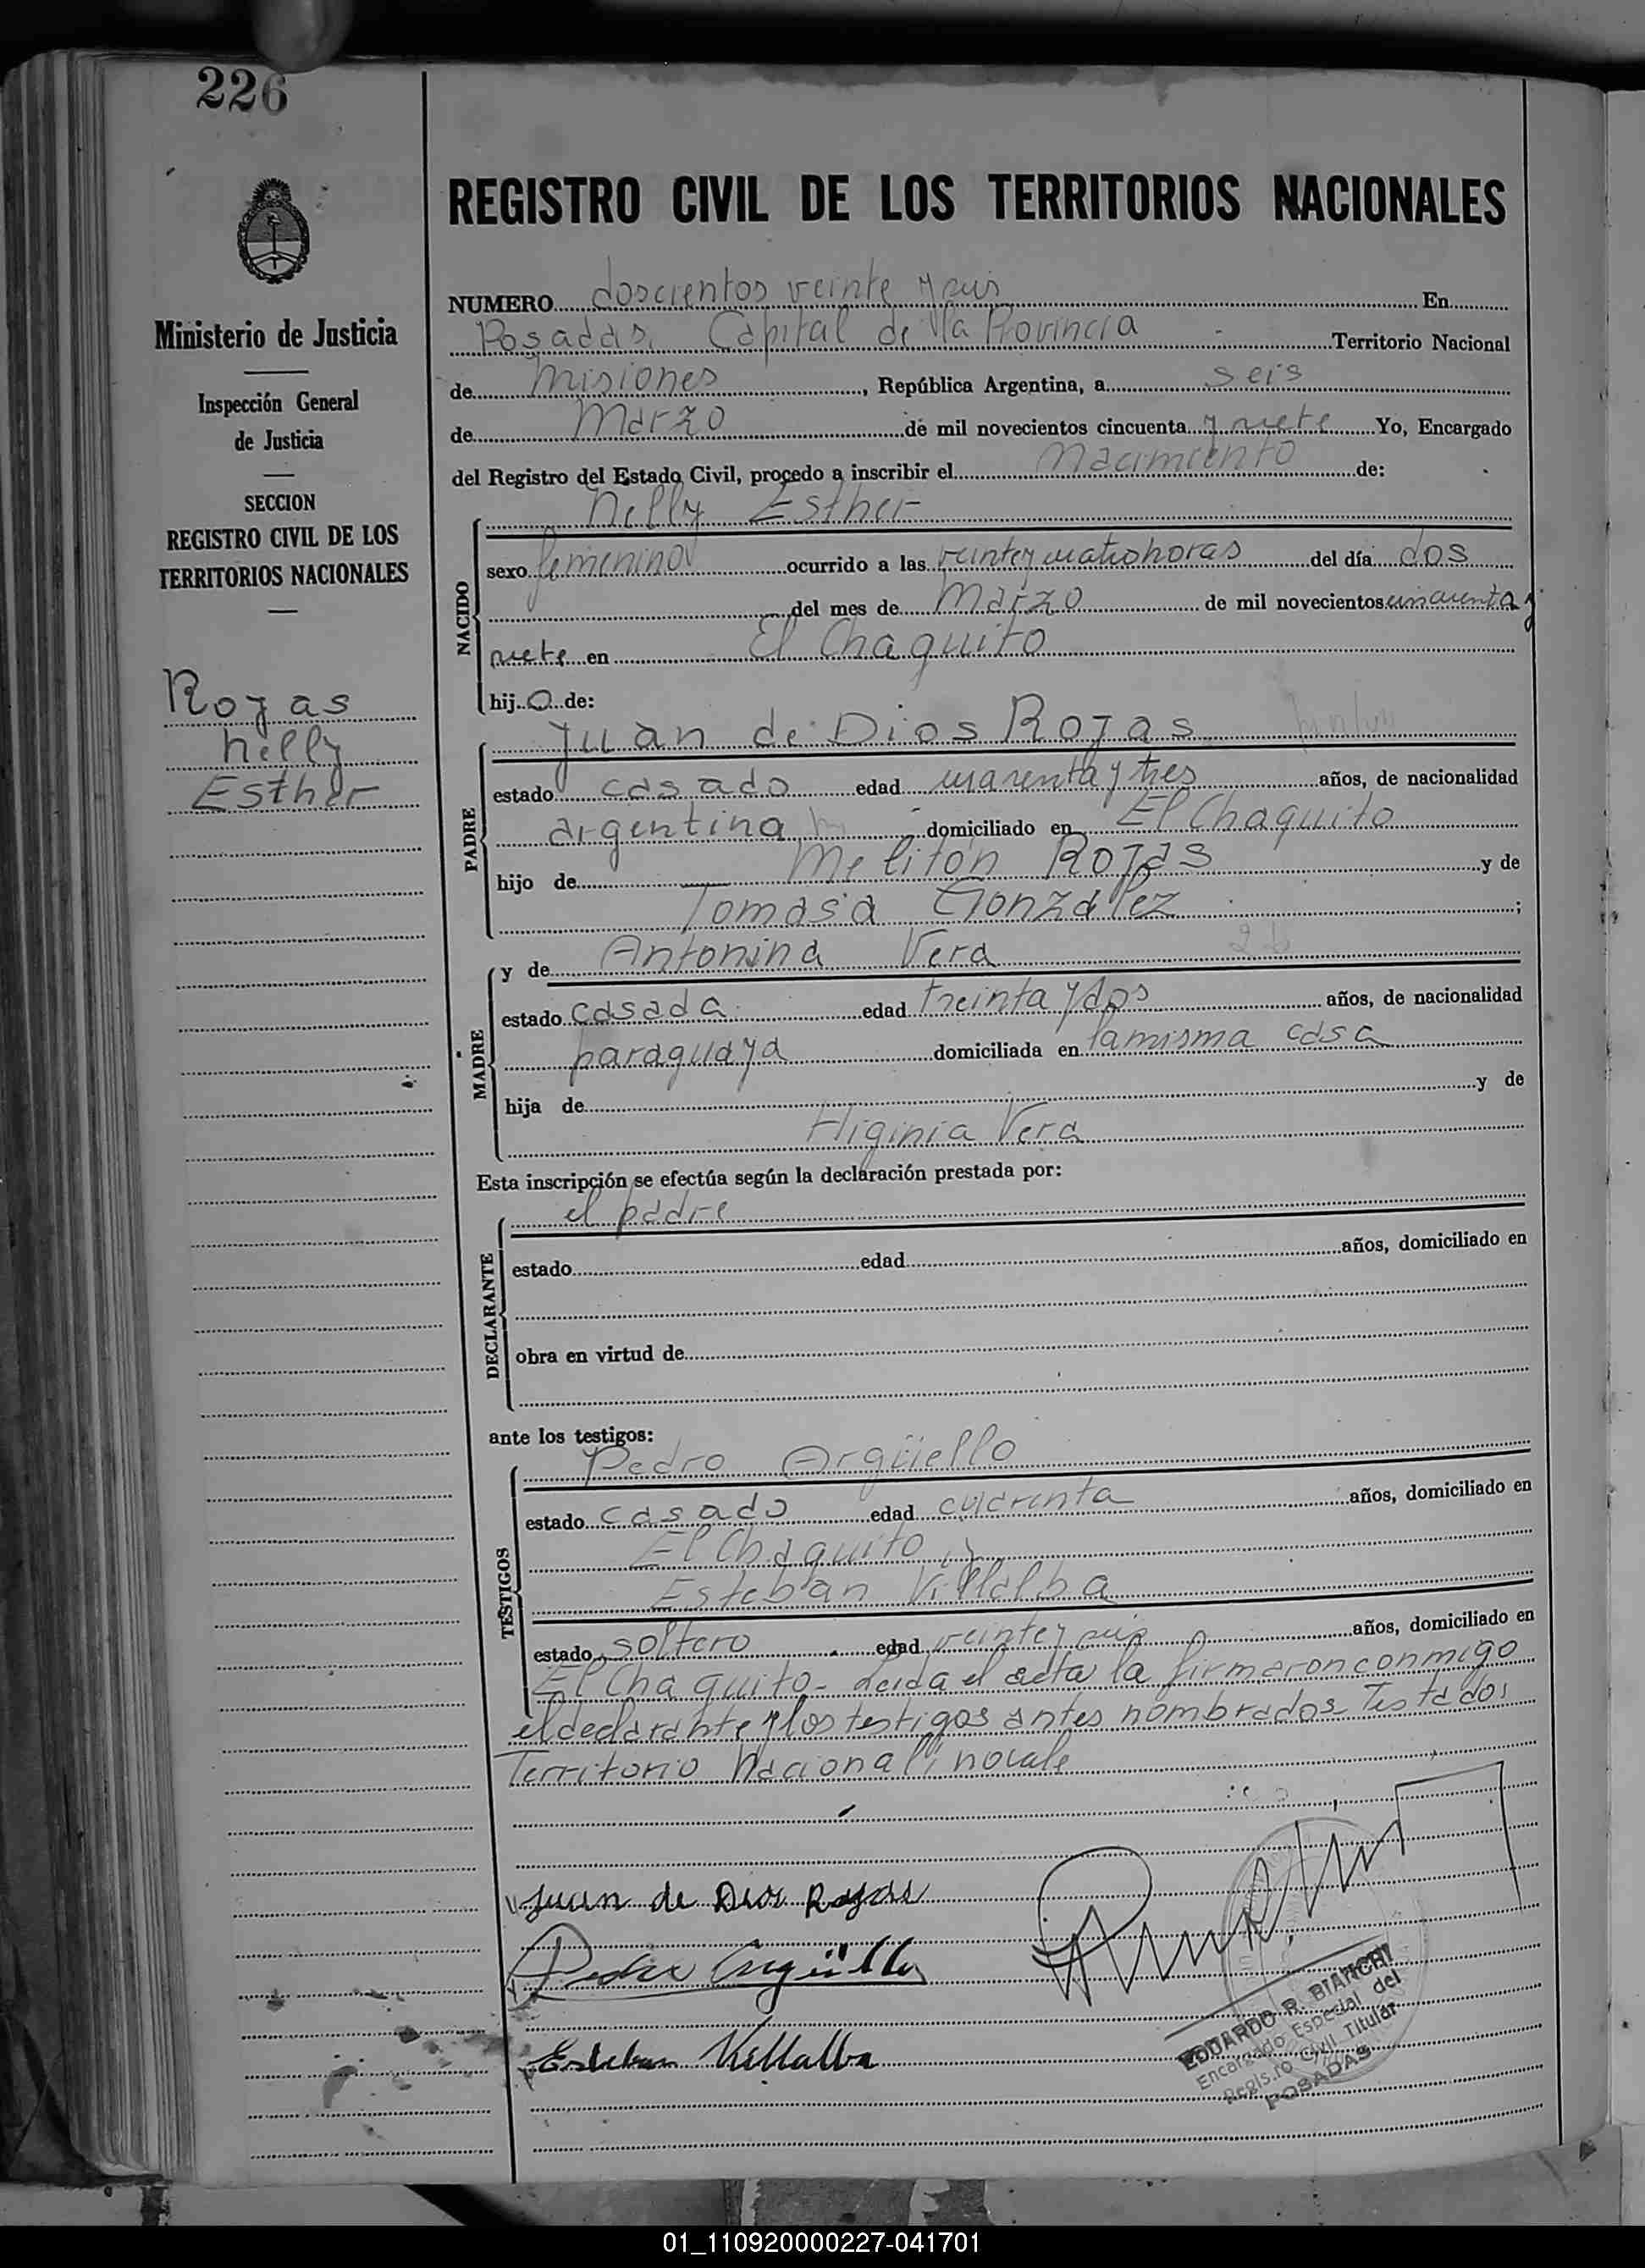 226
REGISTRO CIVIL DE LOS TERRITORIOS NACIONALES
Ministerio de Justicia
Inspección General
de Justicia
SECCION
REGISTRO CIVIL DE LOS
TERRITORIOS NACIONALES
Rojas
Nelly
Esther
NUMERO doscientos veinte y seis En
Posadas, Capital de la Provincia Territorio Nacional
de Misiones, República Argentina, a seis
de Marzo de mil novecientos cincuenta y siete Yo, Encargado
del Registro del Estado Civil, procedo a inscribir el Nacimiento de:
NACIDO
Nelly Esther
sexo femenino ocurrido a las veinte y cuatro horas del día dos
del mes de Marzo de mil novecientos cincuenta y
siete en El Chaquito
hij o de:
PADRE
Juan de Dios Rojas
estado casado edad cuarenta y tres años, de nacionalidad
argentina domiciliado en El Chaquito
hijo de Melitón Rojas y de
Tomasa González ;
MADRE
y de Antonina Vera
estado casada edad treinta y dos años, de nacionalidad
paraguaya domiciliada en la misma casa
hija de y de
Higinia Vera
Esta inscripción se efectúa según la declaración prestada por:
DECLARANTE
el padre
estado edad años, domiciliado en
obra en virtud de
ante los testigos:
TESTIGOS
Pedro Argüello
estado casado edad cuarenta años, domiciliado en
El Chaquito y
Esteban Villalba
estado soltero edad veinte y seis años, domiciliado en
El Chaquito - Leida el acta la firmaron conmigo
el declarante y los testigos antes nombrados - Testados
Territorio Nacional, no vale
Juan de Dios Rojas
Pedro Argüello
Esteban Villalba
EDUARDO R. BIANCHI
Encargado Especial del
Regis.ro Civil Titular
POSADAS
01_110920000227-041701